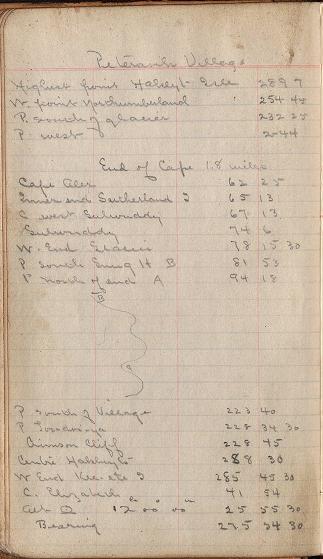 Peteravik Village
Highest point Hakluyt Isle 289 7
W. point Northumberland 254 45
P. south of glacier 232 25
P. west 2-44
End of Cape 1.8 miles
Cape Alex 62 25
Inner end Sutherland I 65 13
C west Sulwuddy 67 13
Sulwuddy 74 6
W. End Glacier 78 15 30
P south Snug H B 81 53
P north of end A 94 18
B
P south of Village 223 40
P 228 34 30
Crimson Cliff 228 45
Centre Hakluyt 288 30
W End I 285 45 30
C. Elizabeth 41 54
Alt 12 00 00 25 55 30
Bearing 275 34 30